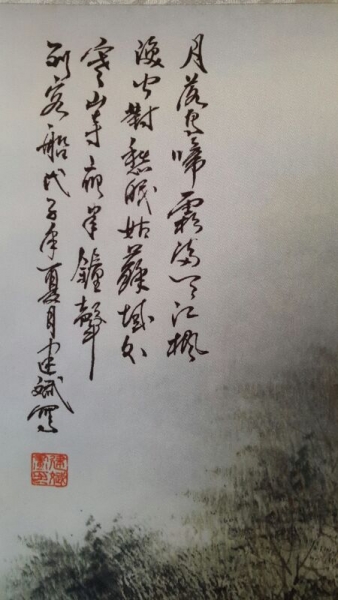 月落烏啼霜滿天江楓
漁火對愁眠姑蘇城外
寒山寺夜半鐘聲
到客船戊子年夏月建斌寫